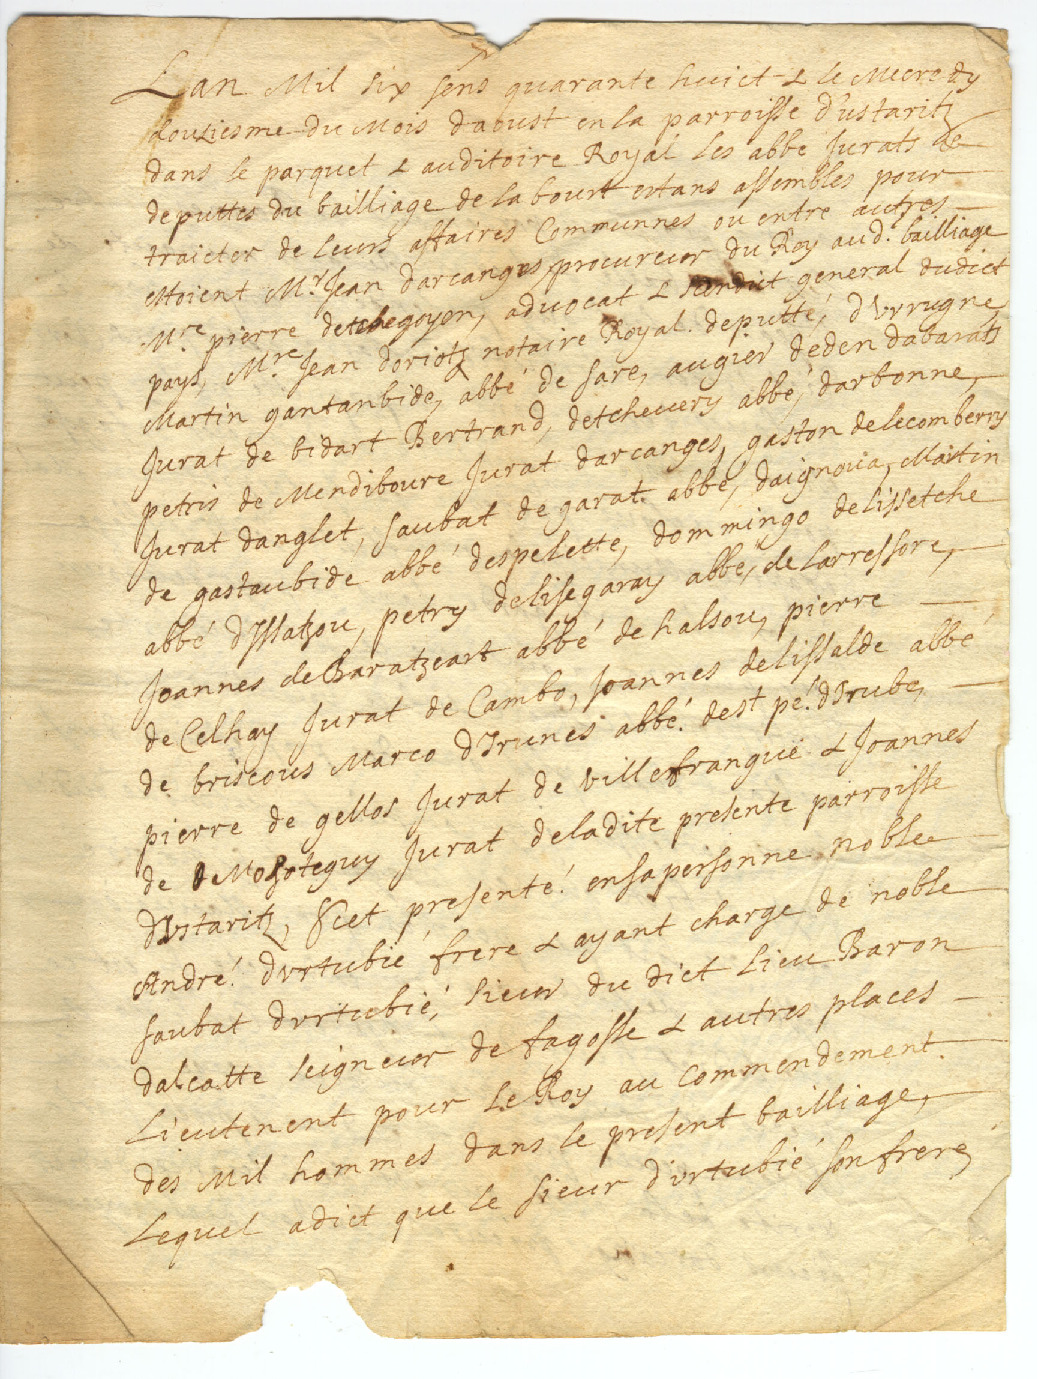 Lan Mil six sens quarante huict & le Mecredy
douziesme du Mois daoust en la parroisse d'ustaritz
dans le parquet & auditoire Royal les abbé Jurats &
deputtes du bailliage de labourt estans assembles pour
traicter de leurs affaires Communnes ou entre autres
estoient Mr. Jean darcangos, procureur du Roy aud. bailliage
Mre. pierre detchegoyen, advocat & scindict general dudict
pays, Mre. Jean doriotz notaire Royal. deputté, d'Urrugne,
Martin gantanbide, abbé de sare, augier deden dabaratz
Jurat de bidart Bertrand, detcheverry abbé, darbonne,
petris de Mendiboure Jurat darcanges, gaston delecomberry
Jurat danglet, saubat de garat. abbé, daignoua, Martin
de gastaubide abbé despelette, dommingo delissetche
abbé dJtsatzou, petry delissegaray abbé, de Larressore,
Joannes de Baratzeart abbé de halsou, pierre
de Celhay Jurat de Cambo, Joannes delissalde abbé
de briscous Marco dIrunes abbé. de st pé. dIrube,
pierre de gellos Jurat de villefranque & Joannes
de deMosoteguy Jurat deladite presente parroisse
dUstaritz, Scet presenté. ensapersonne noble
André. durtubié frere & ayant charge de noble
saubat durtubié, sieur du dict lieu Baron
dalcatte seigneur de fagosse & autres places
Lieutenent pour Le Roy au Commendement.
des Mil hommes dans le present bailliage,
Lequel adict que le sieur d'urtubié son frere